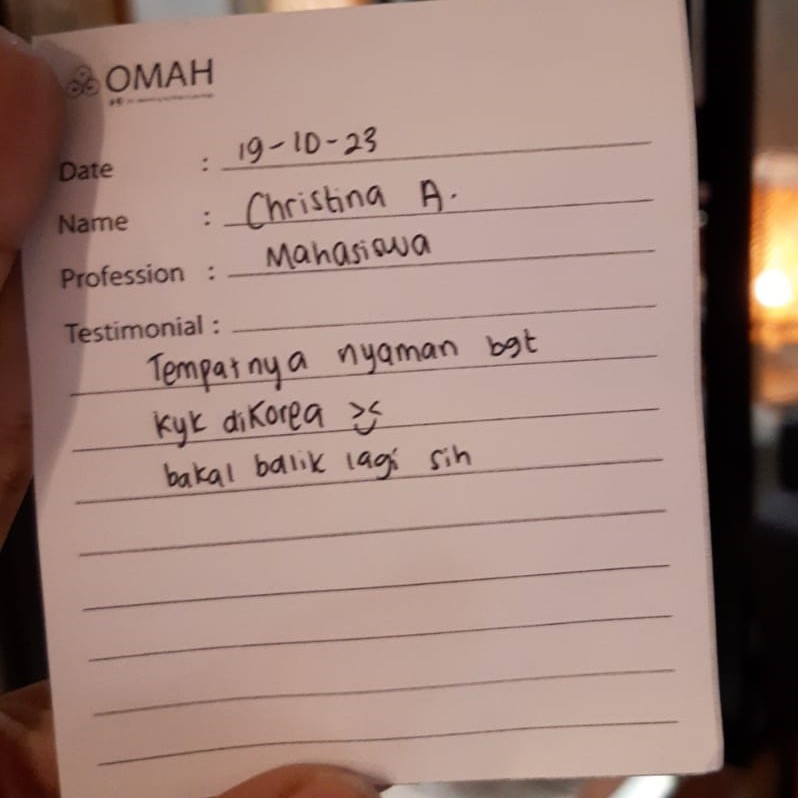 OMAH
Date : 19-10-23
Name : Christina A.
Profession : Mahasiswa
Testimonial :
Tempatnya nyaman bgt
kyk diKorea ><
bakal balik lagi sih